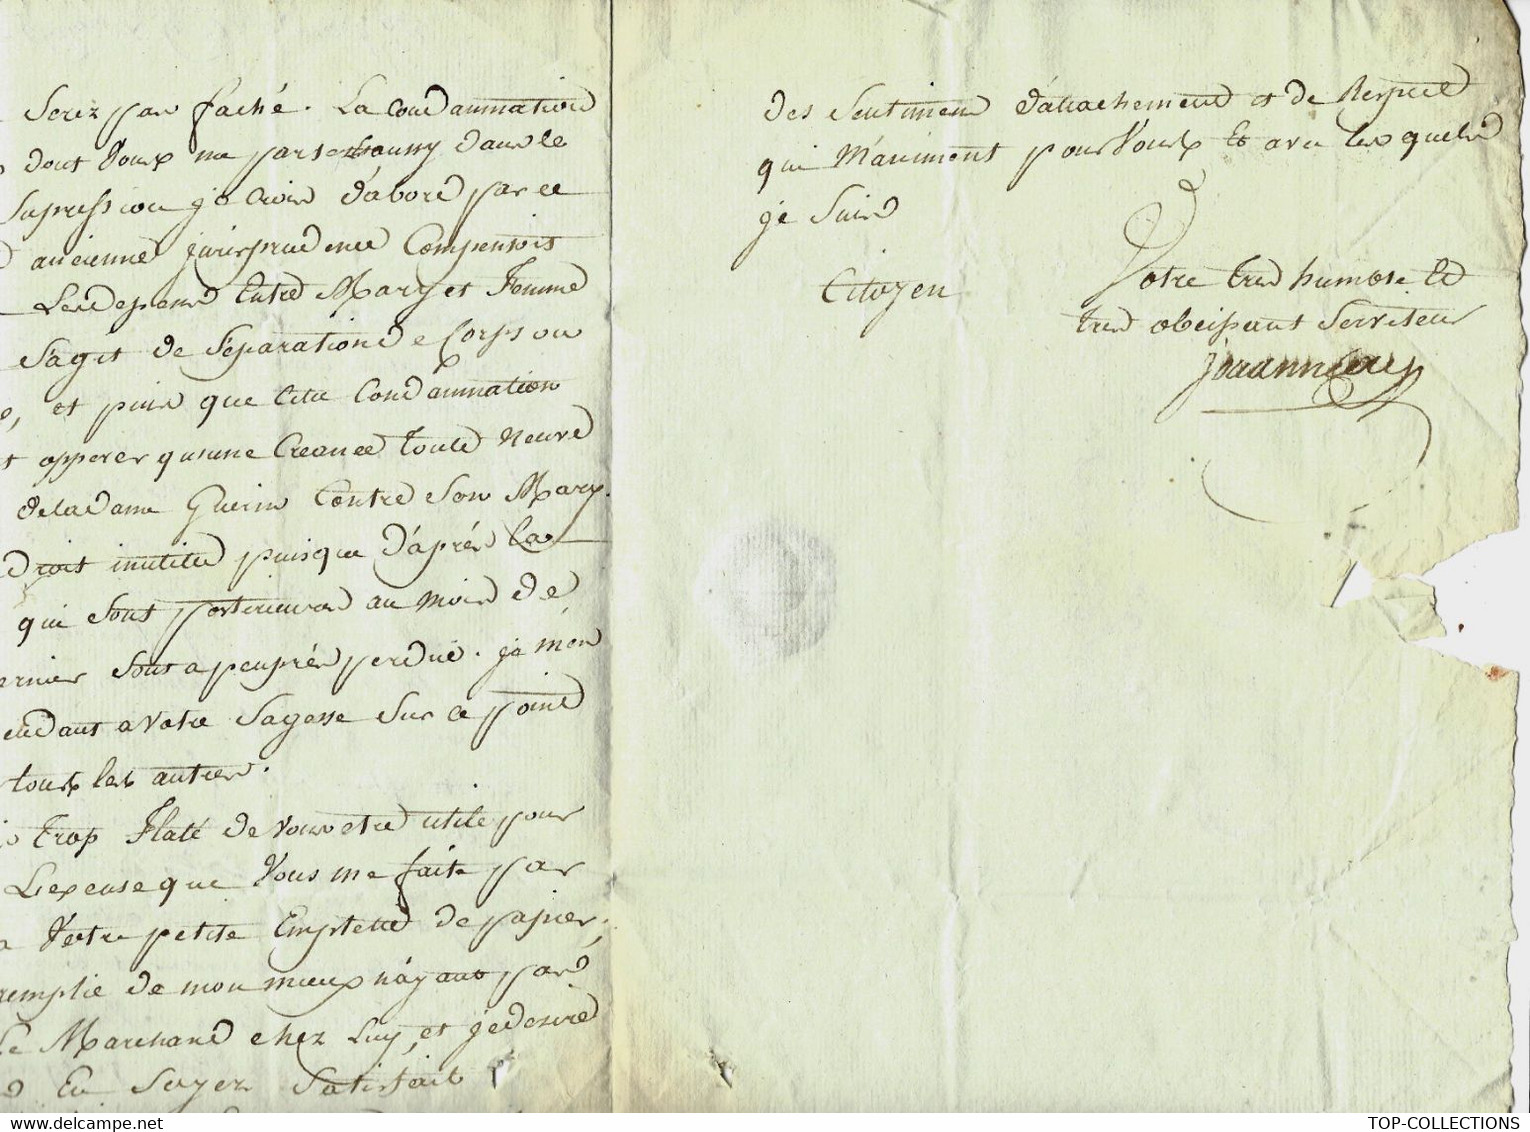 Serez par faché. La Condamnation
dont Vous me parse dans le
Supression je Crois d'abord par ce
ancienne jurisprudence Compensoit
Les depens Entre Mary et Femme
S'agit de Séparation de Corps ou
et puis que Cette Condamnation
opperer qu'une Creance toute Neuve
de la dame Guerin Contre Son Mary.
droit inutille puisque d'aprés La
qui Sont posterieures au mois de
Sont a peuprés perdue. je m'en
a Votre Sagesse Sur ce point
tous les autres.
trop Flaté de Vous etre utile pour
L'excuse que Vous me faite par
Votre petite Emplette de papier,
remplie de mon mieux n'ayant pas
Le Marchand chez Luy, et je desire
En Soyez Satisfait
des Sentimens d'attachement et de Respect
qui M'animent pour Vous Et avec lesquels
je Suis
Citoyen
Votre tres humble Et
tres obeissant Serviteur
TOP-COLLECTIONS